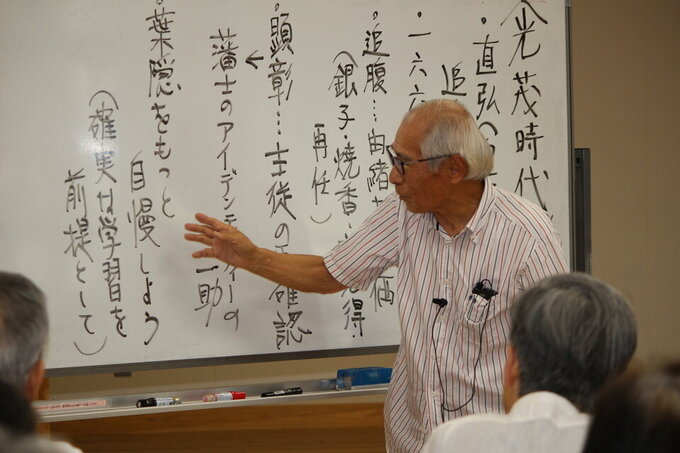 光茂時代
・直弘(
追
・一六六
・追腹…由緒
価
(銀子・焼香
得
再任)
・顕彰…士従の
確認
←
藩士のアイデン
ィーの
一助
・葉隠をもっと
自慢しよう
(確実な学習を
前提として)